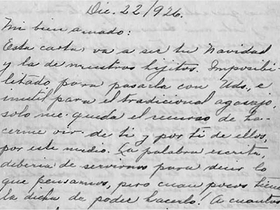 Dic. 22/926.
Mi bien amado:
Esta carta va a ser tu Navidad
y la de nuestros hijitos. Imposibi-
litado para pasarla con Uds, e
inutil para el tradicional agasajo,
solo me queda el recurso de ha-
cerme vivir de ti y por ti de ellos
por este medio. La palabra escrita,
deberia de servirnos para decir lo
que pensamos, pero cuan pocos tienen
la dicha de poder hacerlo. A cuantos